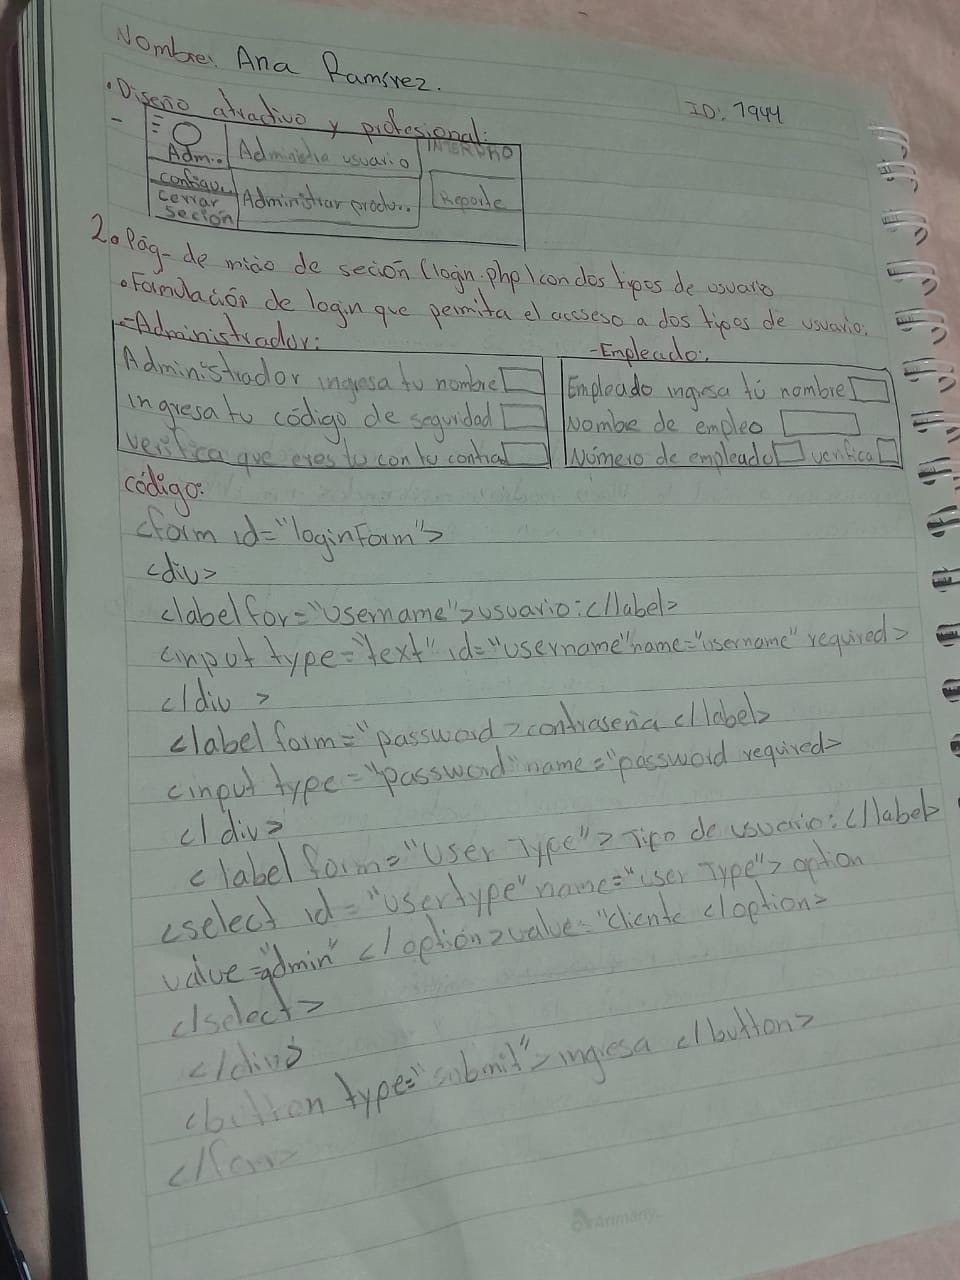 Nombre: Ana Ramírez.
ID: 7944
• Diseño atractivo y profesional:
- Adm... Administra usuario
configu..
cerrar Administrar produ.. Reporte
seción
2. Pág- de inicio de seción (login.php) con dos tipos de usuario
• Formulación de login que permita el acceso a dos tipos de usuario:
- Administrador:
- Empleado:
Administrador ingresa tu nombre
Ingresa tu código de seguridad
verifica que eres tu con tu contral
Empleado ingresa tú nombre
Nombe de empleo
Número de empleado verifica
código:
<form id="loginForm">
<div>
<label for="Username">usuario:<//label>
<input type="text" id="username" name="username" required>
</div>
<label form="password>contraseña</label>
<input type="password" name="password required>
</div>
<label form="User Type">Tipo de usuario:<//label>
<select id="usertype" name="user Type">option
value="admin" </option>value="cliente </option>
</select>
</div>
<button type="submit">ingresa </button>
</form>